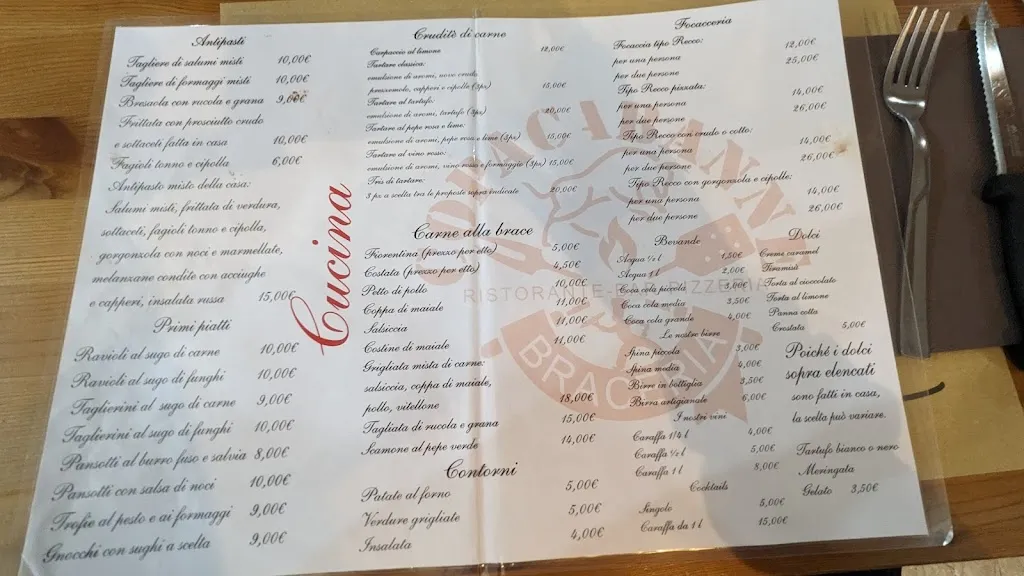 Antipasti
Tagliere di salumi misti 10,00€
Tagliere di formaggi misti 10,00€
Bresaola con rucola e grana 9,00€
Frittata con prosciutto crudo
e sottaceti fatta in casa 10,00€
Fagioli tonno e cipolla 6,00€
Antipasto misto della casa:
Salumi misti, frittata di verdura,
sottaceti, fagioli tonno e cipolla,
gorgonzola con noci e marmellate,
melanzane condite con acciughe
e capperi, insalata russa 15,00€
Primi piatti
Ravioli al sugo di carne 10,00€
Ravioli al sugo di funghi 10,00€
Taglierini al sugo di carne 9,00€
Taglierini al sugo di funghi 10,00€
Pansotti al burro fuso e salvia 8,00€
Pansotti con salsa di noci 10,00€
Trofie al pesto e ai formaggi 9,00€
Gnocchi con sughi a scelta 9,00€
Cucina
Cruditè di carne
Carpaccio al limone 12,00€
Tartare classica:
emulsione di aromi, uovo crudo,
prezzemolo, capperi e cipolla (3pz) 15,00€
Tartare al tartufo:
emulsione di aromi, tartufo (3pz) 20,00€
Tartare al pepe rosa e lime:
emulsione di aromi, pepe rosa e lime (3pz) 15,00€
Tartare al vino rosso:
emulsione di aromi, vino rosso e formaggio (3pz) 15,00€
Tris di tartare:
3 pz a scelta tra le proposte sopra indicate 20,00€
Carne alla brace
Fiorentina (prezzo per etto) 5,00€
Costata (prezzo per etto) 4,50€
Petto di pollo 10,00€
Coppa di maiale 11,00€
Salsiccia 11,00€
Costine di maiale 11,00€
Grigliata mista di carne:
salsiccia, coppa di maiale,
pollo, vitellone 18,00€
Tagliata di rucola e grana 15,00€
Scamone al pepe verde 14,00€
Contorni
Patate al forno 5,00€
Verdure grigliate 5,00€
Insalata 4,00€
Focacceria
Focaccia tipo Recco:
per una persona 12,00€
per due persone 25,00€
Tipo Recco pizzata:
per una persona 14,00€
per due persone 26,00€
Tipo Recco con crudo o cotto:
per una persona 14,00€
per due persone 26,00€
Tipo Recco con gorgonzola e cipolle:
per una persona 14,00€
per due persone 26,00€
Bevande
Acqua ½ l 1,50€
Acqua 1 l 2,00€
Coca cola piccola 3,00€
Coca cola media 3,50€
Coca cola grande 4,00€
Le nostre birre
Spina piccola 3,00€
Spina media 4,00€
Birre in bottiglia 3,50€
Birra artigianale 6,00€
I nostri vini
Caraffa 1/4 l 4,00€
Caraffa ½ l 5,00€
Caraffa 1 l 8,00€
Cocktails
Singolo 5,00€
Caraffa da 1 l 15,00€
Dolci
Creme caramel
Tiramisù
Torta al cioccolato
Torta al limone
Panna cotta
Crostata 5,00€
Poiché i dolci
sopra elencati
sono fatti in casa,
la scelta può variare.
Tartufo bianco o nero
Meringata
Gelato 3,50€
BRACERIA